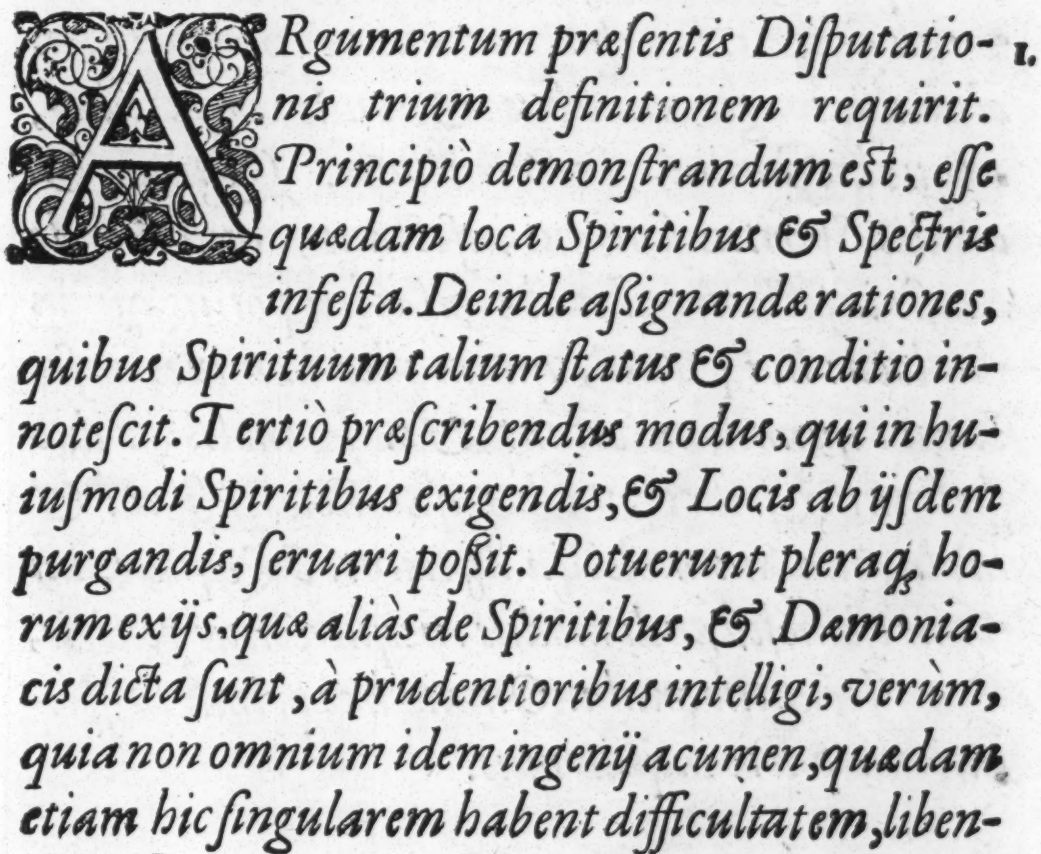 ARgumentum præſentis Diſputatio- I.
nis trium definitionem requirit.
Principiò demonſtrandum eſt, eſſe
quædam loca Spiritibus & Spectris
infeſta. Deinde aßignandæ rationes,
quibus Spirituum talium ſtatus & conditio in-
noteſcit. Tertiò præſcribendus modus, qui in hu-
iuſmodi Spiritibus exigendis, & Locis ab ijſdem
purgandis, ſeruari poßit. Potuerunt pleraq́; ho-
rum ex ijs, quæ aliàs de Spiritibus, & Dæmonia-
cis dicta ſunt, à prudentioribus intelligi, verùm,
quia non omnium idem ingenij acumen, quædam
etiam hic ſingularem habent difficultatem, liben-